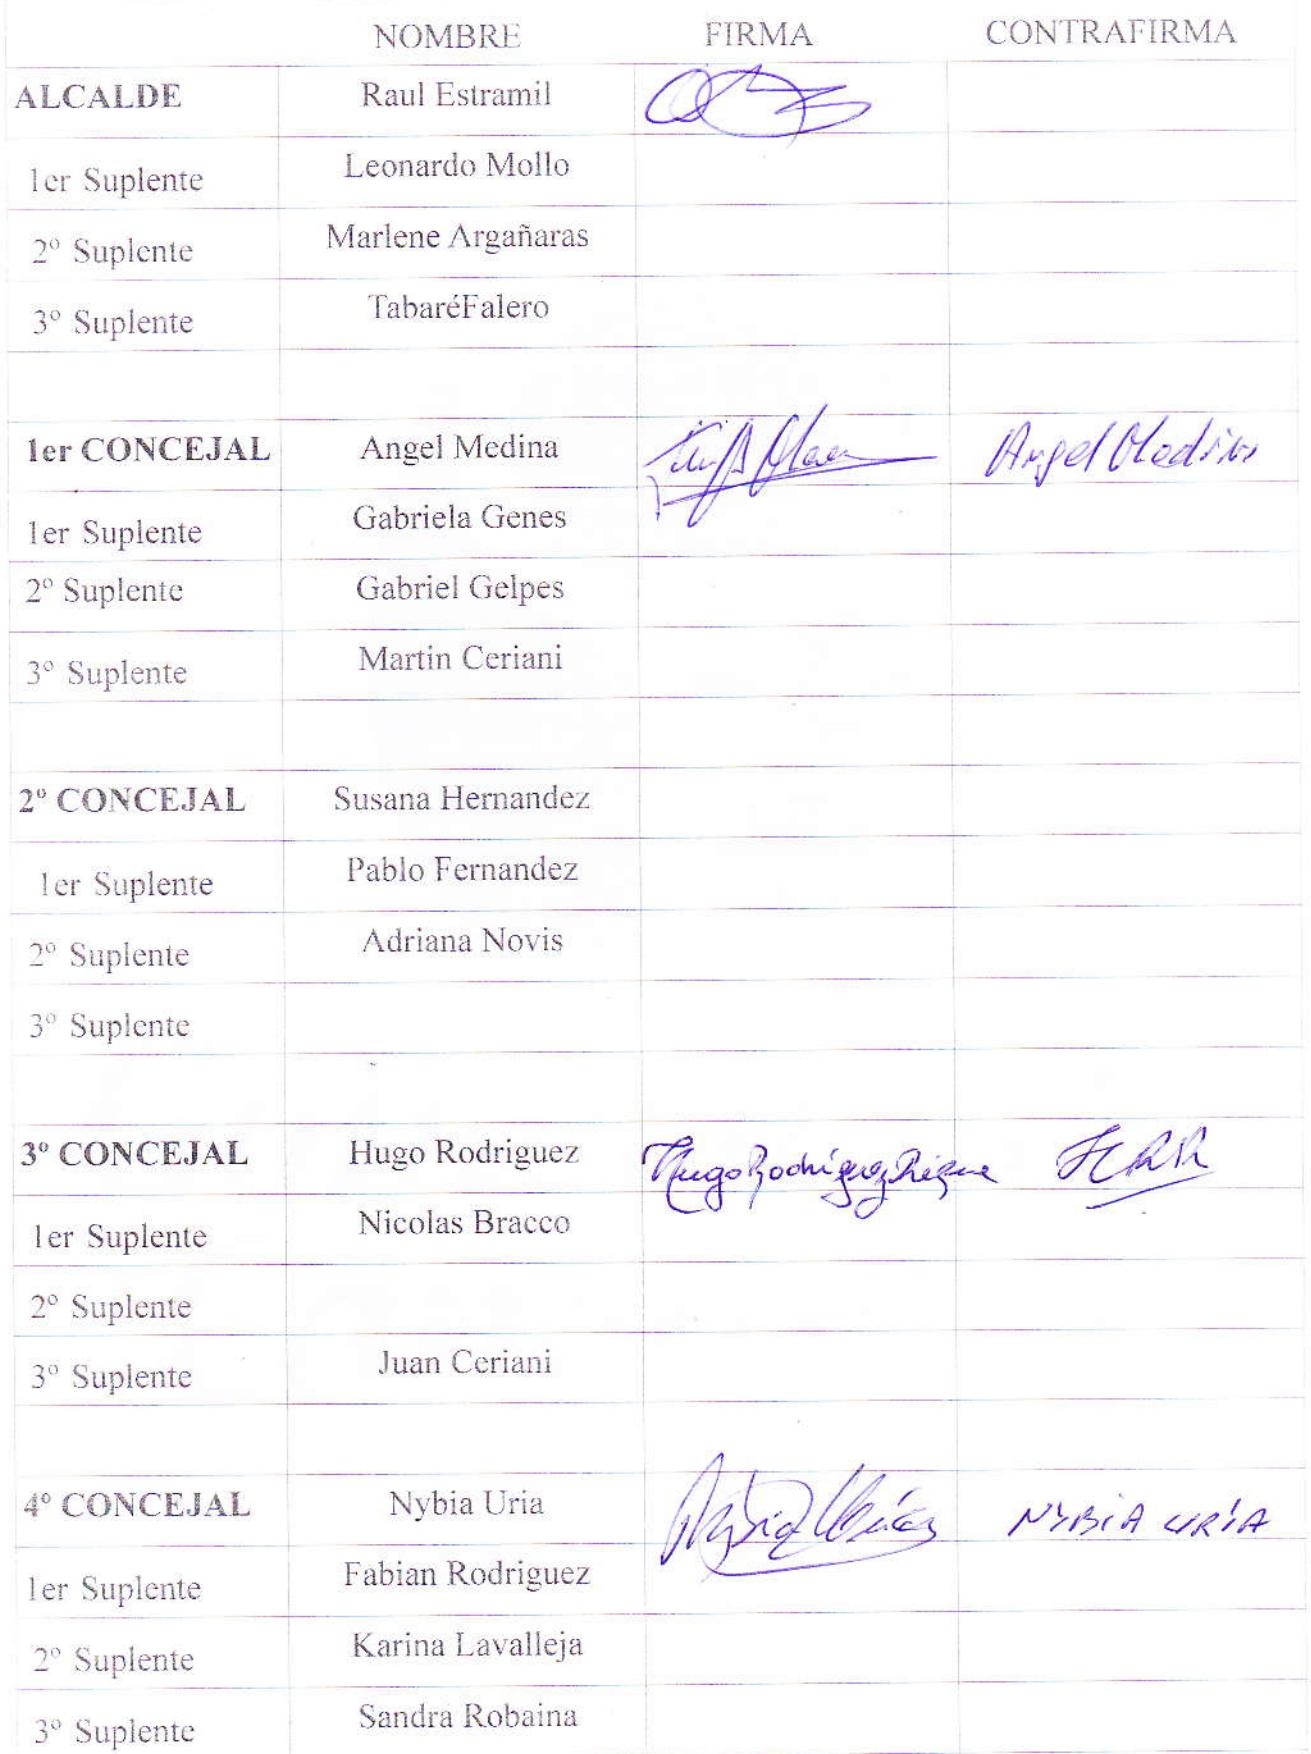 NOMBRE FIRMA CONTRAFIRMA
ALCALDE Raul Estramil
1er Suplente Leonardo Mollo
2º Suplente Marlene Argañaras
3º Suplente TabaréFalero
1er CONCEJAL Angel Medina Angel Medina
1er Suplente Gabriela Genes
2º Suplente Gabriel Gelpes
3º Suplente Martin Ceriani
2º CONCEJAL Susana Hernandez
1er Suplente Pablo Fernandez
2º Suplente Adriana Novis
3º Suplente
3º CONCEJAL Hugo Rodriguez Hugo Rodríguez
1er Suplente Nicolas Bracco
2º Suplente
3º Suplente Juan Ceriani
4º CONCEJAL Nybia Uria Nybia Uría NYBIA URÍA
1er Suplente Fabian Rodriguez
2º Suplente Karina Lavalleja
3º Suplente Sandra Robaina